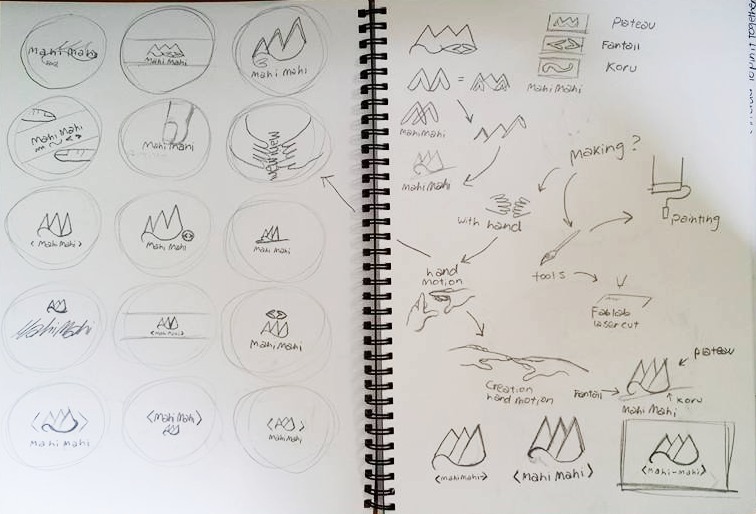 Mahi Mahi
Mahi Mahi
Mahi Mahi
Mahi Mahi
Mahi Mahi
Mahi Mahi
<Mahi Mahi>
Mahi Mahi
Mahi Mahi
Mahi Mahi
<Mahi Mahi>
Mahi Mahi
Mahi Mahi
<Mahi Mahi>
Mahi Mahi
Plateau
Fantail
Koru
=
Mahi Mahi
Mahi Mahi
Mahi Mahi
Making?
with hand
painting
hand
motion
tools
Fablab
laser cut
Creation
hand motion
plateau
Fantail
Koru
Mahi Mahi
<Mahi Mahi>
<Mahi Mahi>
<Mahi-Mahi>